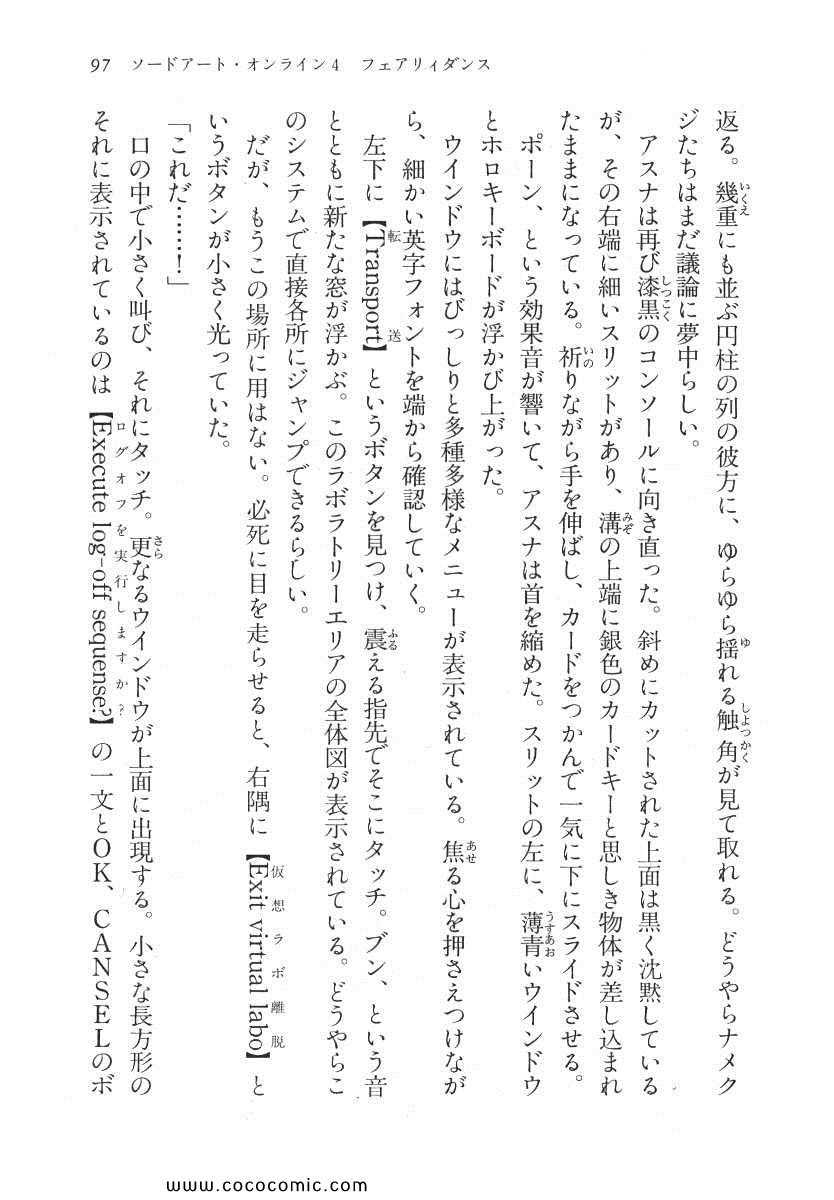 97　ソードアート・オンライン4　フェアリィダンス
返る。幾重にも並ぶ円柱の列の彼方に、ゆらゆら揺れる触角が見て取れる。どうやらナメク
いくえ
ゆ
しょっかく
ジたちはまだ議論に夢中らしい。
アスナは再び漆黒のコンソールに向き直った。斜めにカットされた上面は黒く沈黙している
しっこく
が、その右端に細いスリットがあり、溝の上端に銀色のカードキーと思しき物体が差し込まれ
みぞ
たままになっている。祈りながら手を伸ばし、カードをつかんで一気に下にスライドさせる。
いの
ポーン、という効果音が響いて、アスナは首を縮めた。スリットの左に、薄青いウインドウ
うすあお
とホロキーボードが浮かび上がった。
ウインドウにはびっしりと多種多様なメニューが表示されている。焦る心を押さえつけなが
あせ
ら、細かい英字フォントを端から確認していく。
左下に【Transport】というボタンを見つけ、震える指先でそこにタッチ。ブン、という音
転送
ふる
とともに新たな窓が浮かぶ。このラボラトリーエリアの全体図が表示されている。どうやらこ
のシステムで直接各所にジャンプできるらしい。
だが、もうこの場所に用はない。必死に目を走らせると、右隅に【Exit virtual labo】と
仮想ラボ離脱
いうボタンが小さく光っていた。
「これだ……！」
口の中で小さく叫び、それにタッチ。更なるウインドウが上面に出現する。小さな長方形の
さら
それに表示されているのは【Execute log-off sequense?】の一文とOK、CANSELのボ
ログオフを実行しますか？
www.cococomic.com